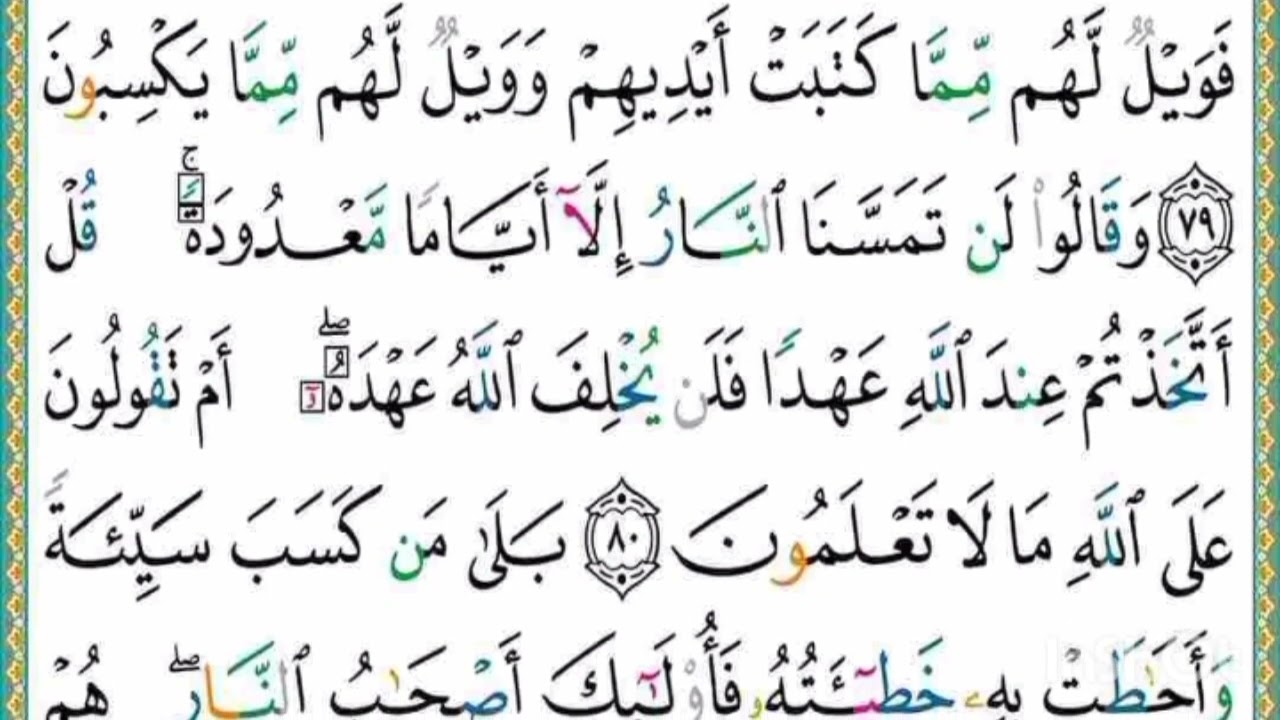 فَوَيْلٌ لَّهُم مِّمَّا كَتَبَتْ أَيْدِيهِمْ وَوَيْلٌ لَّهُم مِّمَّا يَكْسِبُونَ
٧٩ وَقَالُوا۟ لَن تَمَسَّنَا ٱلنَّارُ إِلَّآ أَيَّامًا مَّعْدُودَةً ۚ قُلْ
أَتَّخَذْتُمْ عِندَ ٱللَّهِ عَهْدًا فَلَن يُخْلِفَ ٱللَّهُ عَهْدَهُۥٓ ۖ أَمْ تَقُولُونَ
عَلَى ٱللَّهِ مَا لَا تَعْلَمُونَ ٨٠ بَلَىٰ مَن كَسَبَ سَيِّئَةً
وَأَحَٰطَتْ بِهِۦ خَطِيٓـَٔتُهُۥ فَأُو۟لَٰٓئِكَ أَصْحَٰبُ ٱلنَّارِ ۖ هُمْ